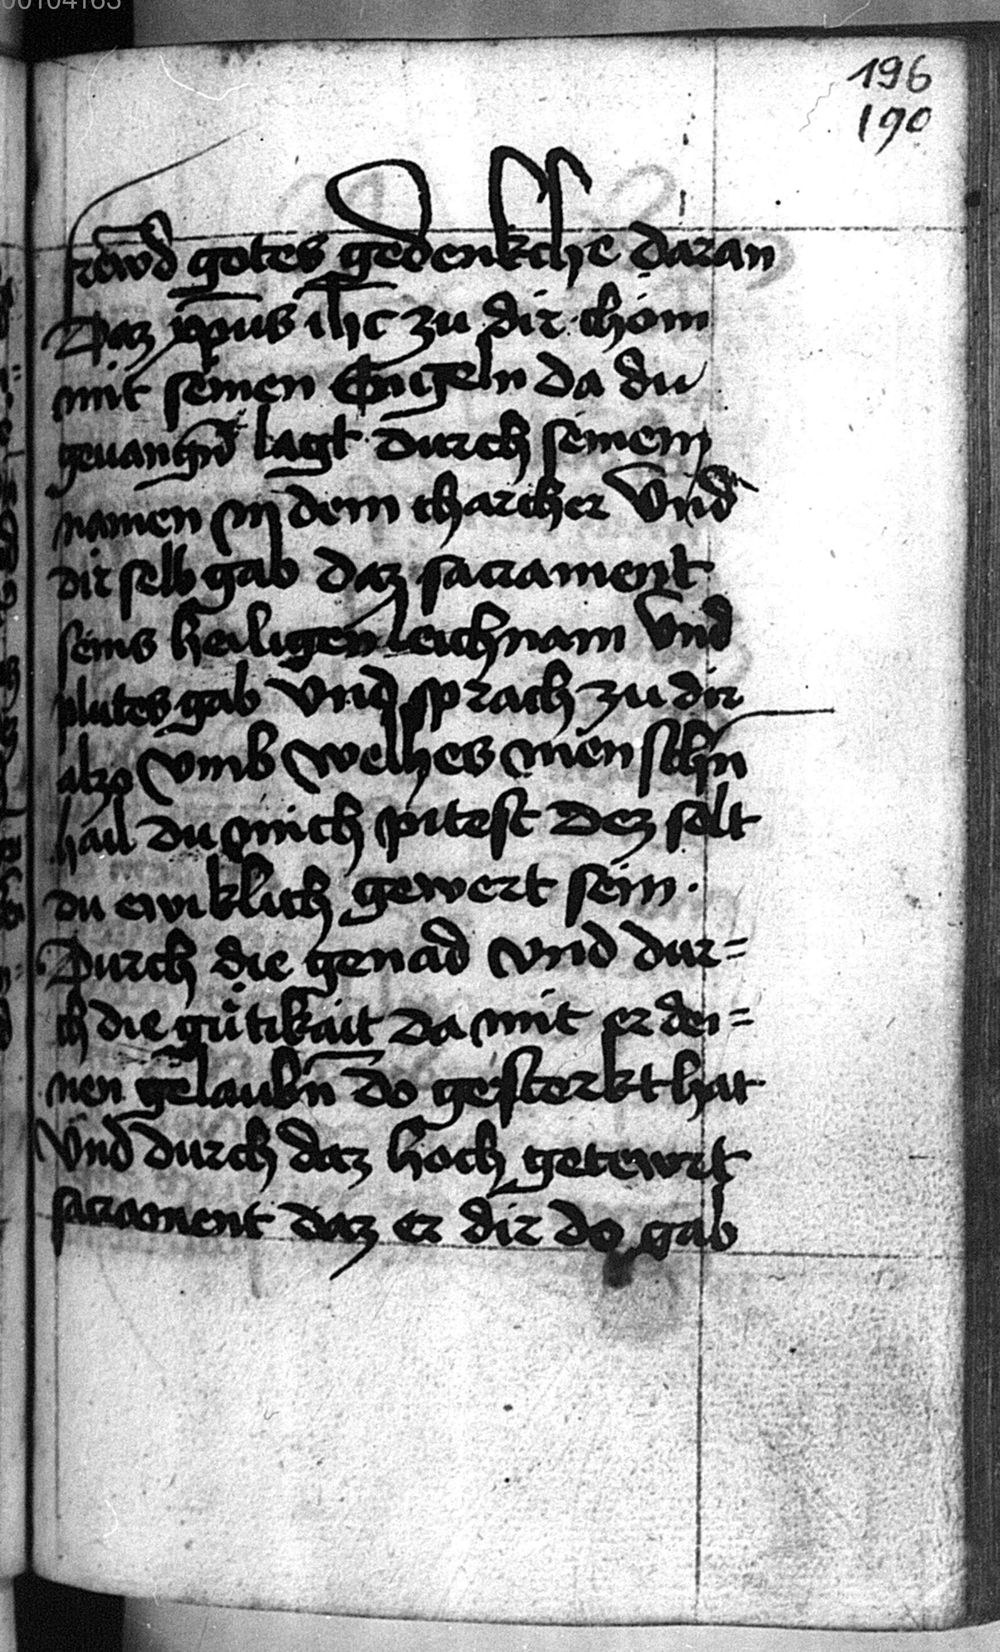 00104163
196
190
frewnd gotes gedenkche daran
Daz xp̄us ih̄c zu dir chom
mit seinen Engeln da du
geuangn̄ lagt durch seinem
namen in dem charcher vnd
dir selb gab daz sacrament
seins heiligen leichnam vnd
plutes gab vnd sprach zu dir
alzo vmb welhes menschn̄
hail du mich pitest dez solt
du ewiklich gewert sein.
Durch die genad vnd dur=
ch die gutikait da mit er dei=
nen gelaubn̄ do gesterkt hat
Vnd durch daz hoch getewrt
sacrament daz er dir do gab